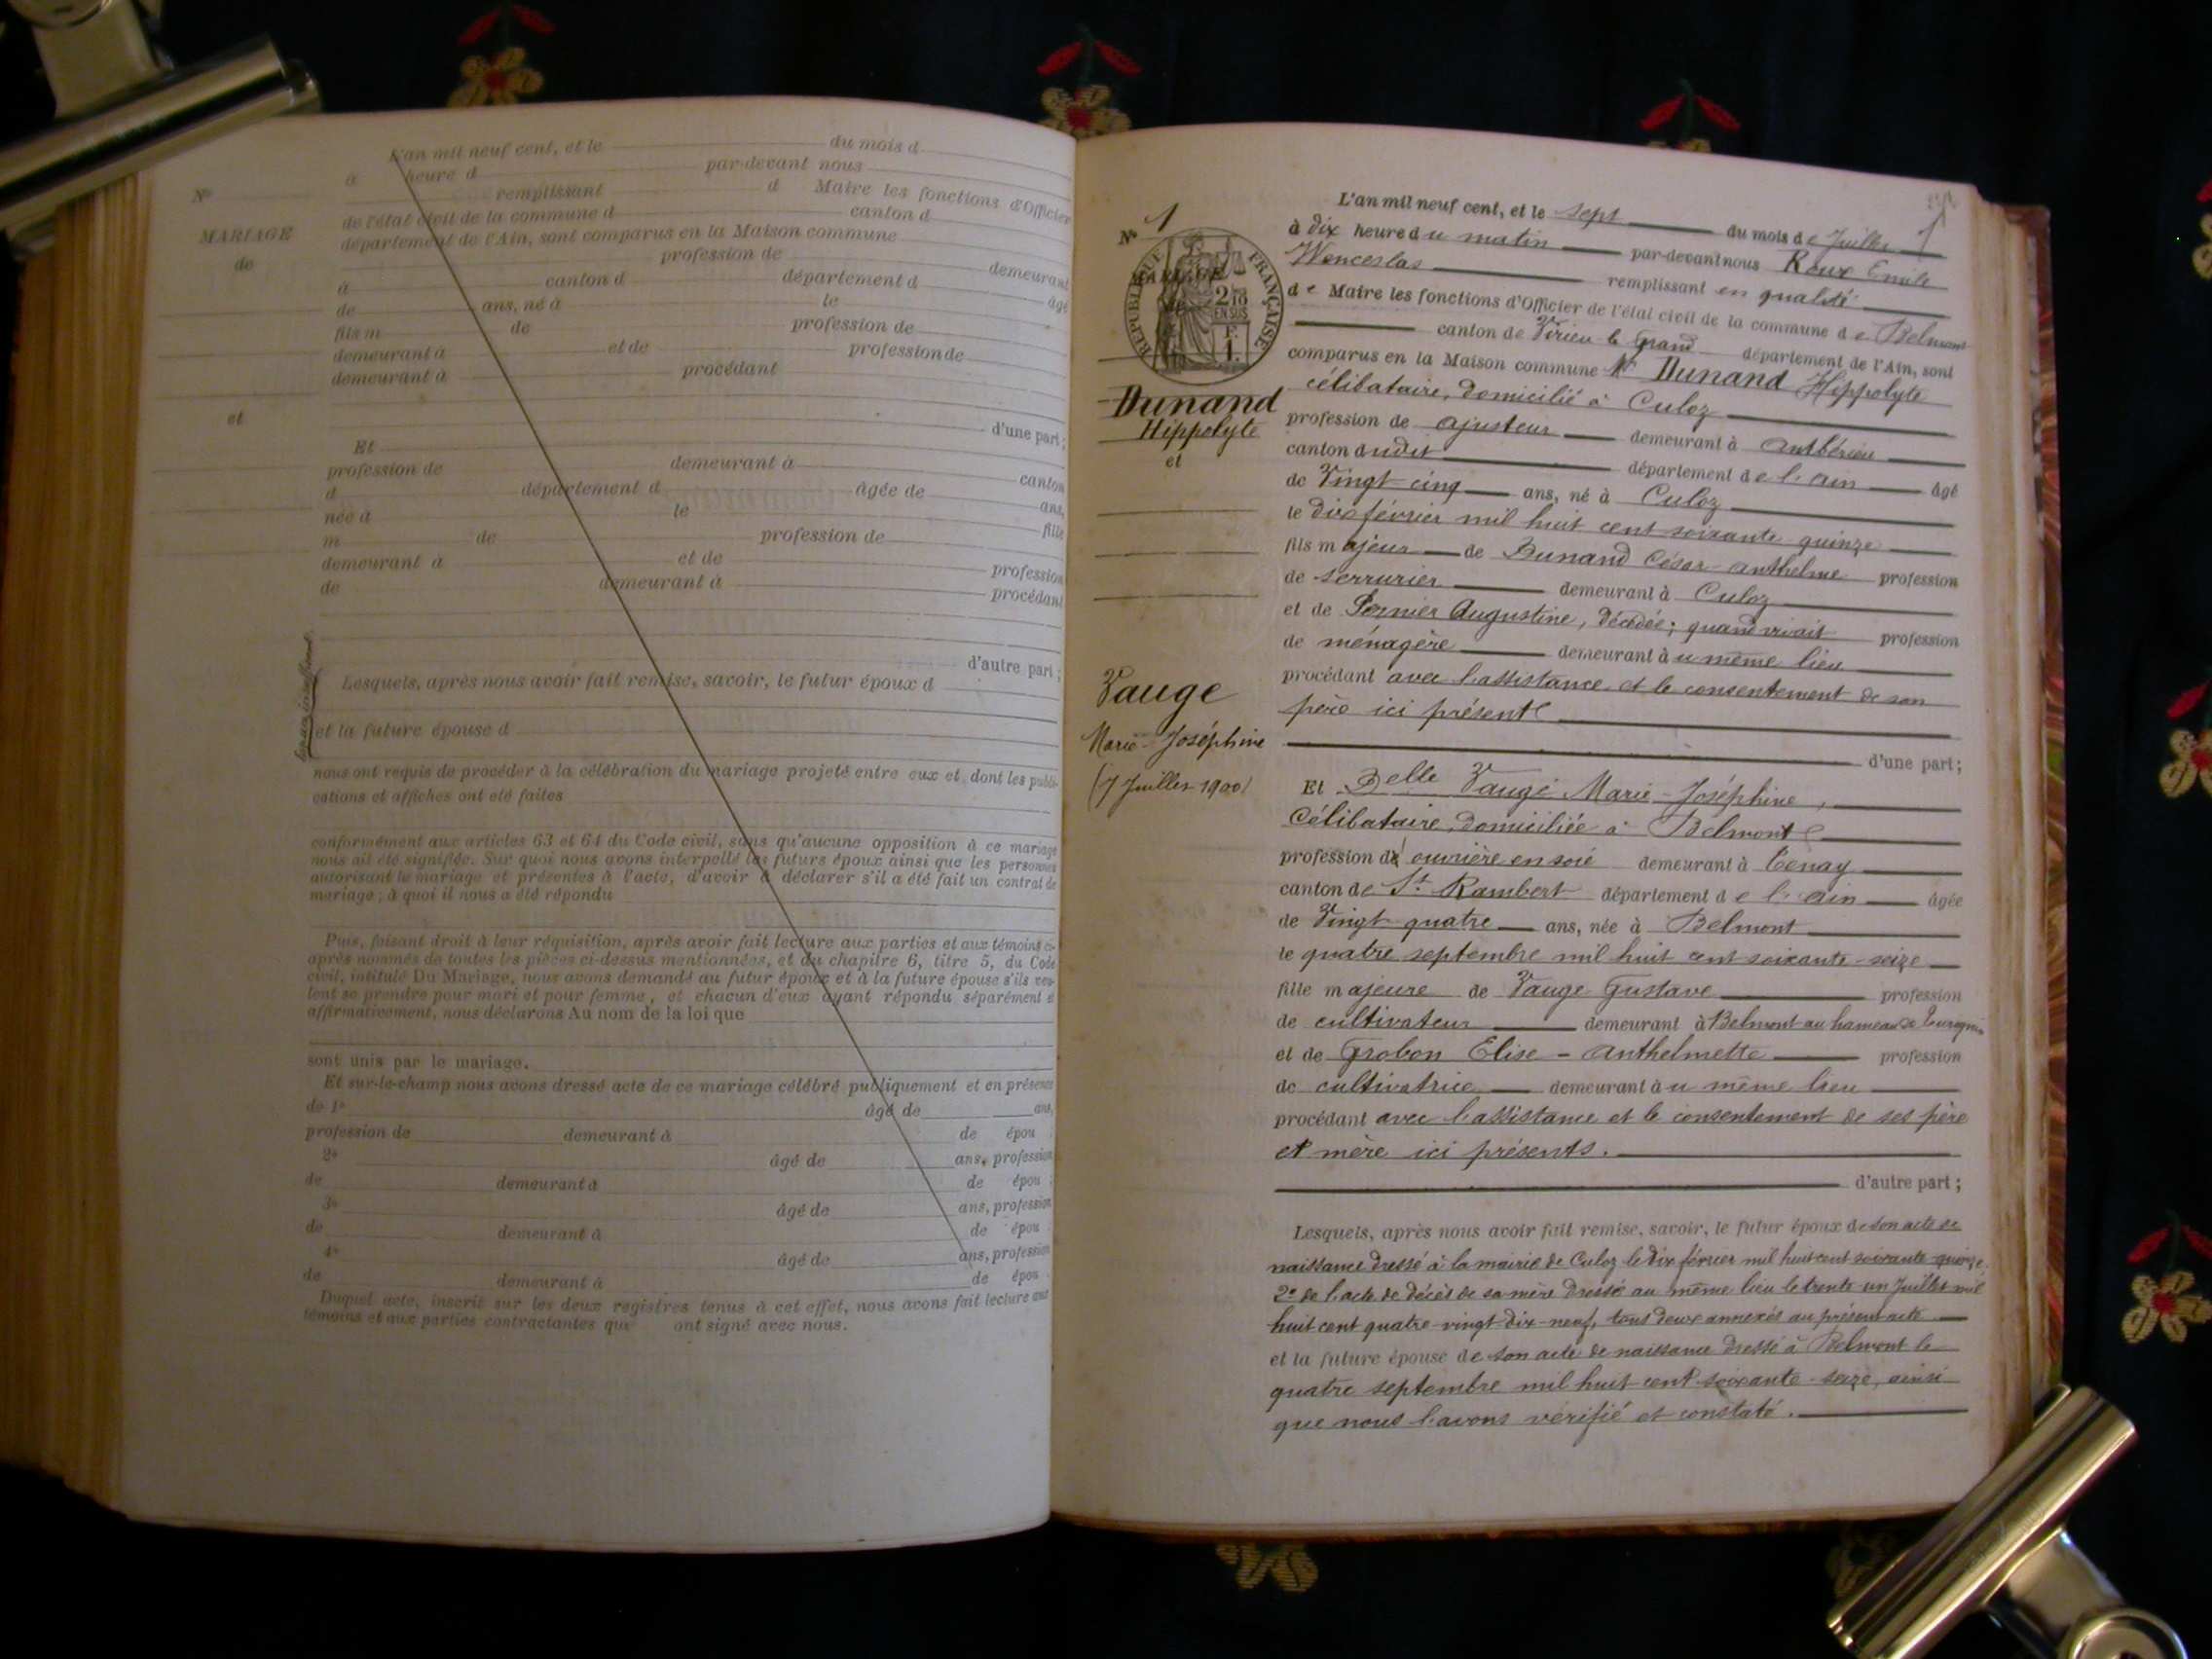 L'an mil neuf cent, et le du mois d
à heure d par-devant nous
Nº remplissant d Maire les fonctions d'Officier
de l'état civil de la commune d canton d
MARIAGE département de l'Ain, sont comparus en la Maison commune
de profession de demeurant
à canton d département d âgé
de ans, né à le
fils m de profession de
demeurant à et de profession de
demeurant à procédant
et
d'une part;
Et
profession de demeurant à canton
d département d âgée de ans,
née à le fille
m de profession de
demeurant à et de profession
de demeurant à procédant
d'autre part;
Lesquels, après nous avoir fait remise, savoir, le futur époux d
et la future épouse d
nous ont requis de procéder à la célébration du mariage projeté entre eux et dont les publi-
cations et affiches ont été faites
conformément aux articles 63 et 64 du Code civil, sans qu'aucune opposition à ce mariage
nous ait été signifiée. Sur quoi nous avons interpellé les futurs époux ainsi que les personnes
autorisant le mariage et présentes à l'acte, d'avoir à déclarer s'il a été fait un contrat de
mariage; à quoi il nous a été répondu
Puis, faisant droit à leur réquisition, après avoir fait lecture aux parties et aux témoins ci-
après nommés de toutes les pièces ci-dessus mentionnées, et du chapitre 6, titre 5, du Code
civil, intitulé Du Mariage, nous avons demandé au futur époux et à la future épouse s'ils veu-
lent se prendre pour mari et pour femme, et chacun d'eux ayant répondu séparément et
affirmativement, nous déclarons Au nom de la loi que
sont unis par le mariage.
Et sur-le-champ nous avons dressé acte de ce mariage célébré publiquement et en présence
de 1º âgé de ans,
profession de demeurant à de épou ;
2º âgé de ans, profession
de demeurant à de épou ;
3º âgé de ans, profession
de demeurant à de épou
4º âgé de ans, profession
de demeurant à de épou
Duquel acte, inscrit sur les deux registres tenus à cet effet, nous avons fait lecture aux
témoins et aux parties contractantes qui ont signé avec nous.
Nº 1
RÉPUBLIQUE FRANÇAISE
MARIAGE
de
2/10
EN SUS
F.
1.
Dunand
Hippolyte
et
Vauge
Marie-Joséphine
(7 Juillet 1900)
L'an mil neuf cent, et le sept du mois de Juillet
à dix heure du matin par-devant nous Roux Emile
Wenceslas remplissant en qualité
de Maire les fonctions d'Officier de l'état civil de la commune de Belmont
canton de Virieu le Grand département de l'Ain, sont
comparus en la Maison commune Mr Dunand Hippolyte
célibataire, domicilié à Culoz
profession de ajusteur demeurant à Ambérieu
canton dudit département de l'Ain âgé
de Vingt cinq ans, né à Culoz
le dix février mil huit cent soixante quinze
fils majeur de Dunand César Anthelme profession
de serrurier demeurant à Culoz
et de Augustine, décédée; quand vivait profession
de ménagère demeurant à u même lieu
procédant avec l'assistance et le consentement de son
père ici présent
d'une part;
Et Delle Vauge Marie-Joséphine,
Célibataire, domiciliée à Belmont
profession d' ouvrière en soie demeurant à Tenay
canton de St Rambert département de l'Ain âgée
de Vingt quatre ans, née à Belmont
le quatre septembre mil huit cent soixante-seize
fille majeure de Vauge Gustave profession
de cultivateur demeurant à Belmont au hameau de
et de Grobon Elise-Anthelmette profession
de cultivatrice demeurant à u même lieu
procédant avec l'assistance et le consentement de ses père
et mère ici présents.
d'autre part;
Lesquels, après nous avoir fait remise, savoir, le futur époux de son acte de
naissance dressé à la mairie de Culoz le dix février mil huit cent soixante-quinze.
2º de l'acte de décès de sa mère dressé au même lieu le trente un Juillet mil
huit cent quatre-vingt-dix-neuf, tous deux annexés au présent acte
et la future épouse de son acte de naissance dressé à Belmont le
quatre septembre mil huit cent soixante-seize, ainsi
que nous l'avons vérifié et constaté.